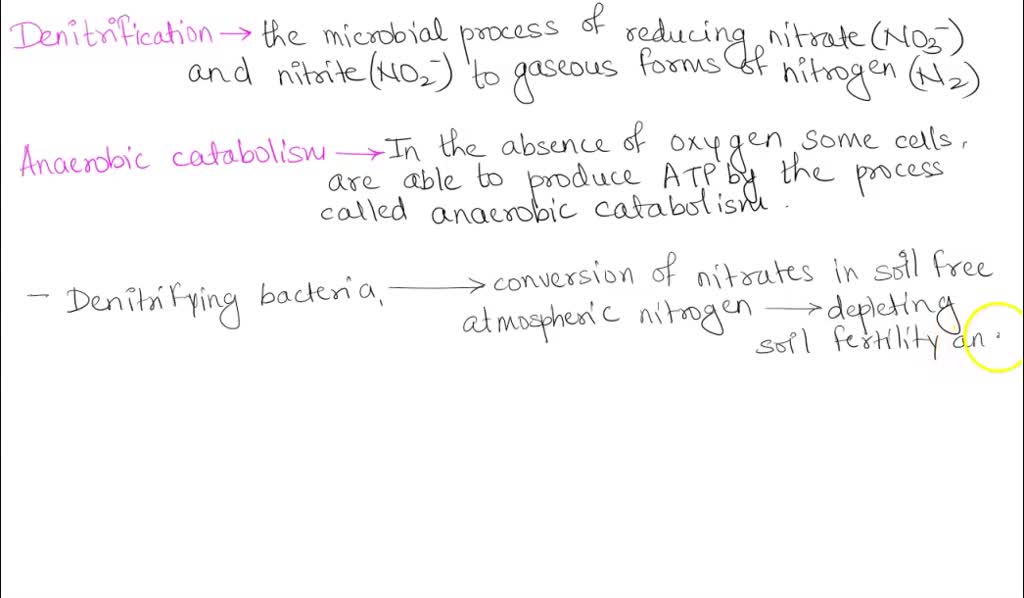 Denitrification → the microbial process of reducing nitrate (NO3-)
and nitrite (NO2-) to gaseous forms of nitrogen (N2)
Anaerobic catabolism → In the absence of oxygen some cells,
are able to produce ATP by the process
called anaerobic catabolism.
- Denitrifying bacteria, → conversion of nitrates in soil free
atmospheric nitrogen → depleting
soil fertility an